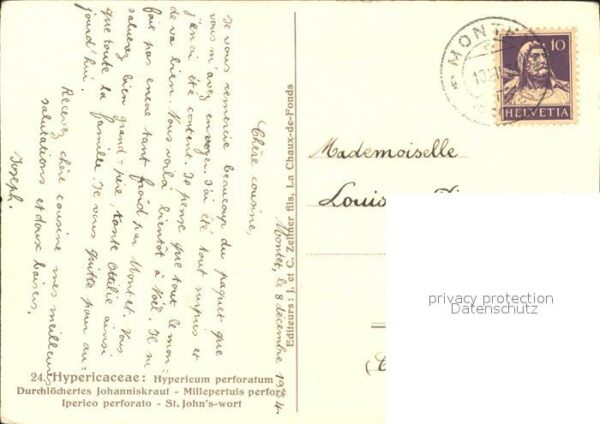 Montet, le 8 décembre 1924.
Chère cousine,
Je vous remercie beaucoup du paquet que
vous m'avez envoyer. J'ai été tout surpris et
j'en ai été content. Je pense que tout le mon-
de va bien. Nous voilà bientôt à Noël. Il ne
fait pas encore tant froid par Montet. Vous
saluerez bien grand-père, tante Ottilie ainsi
que toute la famille. Je vous quitte pour au-
jourd'hui.
Recevez chère cousine mes meilleures
salutations et doux baisers.
Joseph.
24. Hypericaceae: Hypericum perforatum
Durchlöchertes Johanniskraut - Millepertuis perforé
Iperico perforato - St. John's-wort
Editeurs: J. et C. Zellner fils, La Chaux-de-Fonds
MONT
10
HELVETIA
Mademoiselle
Louis
privacy protection
Datenschutz